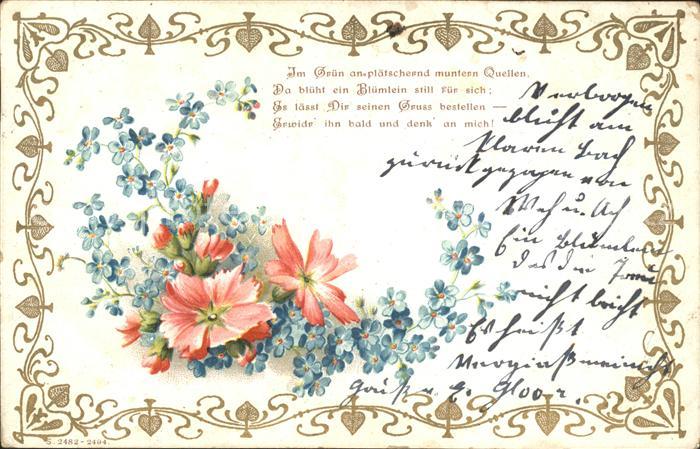 Im Grün an plätschernd muntern Quellen,
Da blüht ein Blümlein still für sich;
Es lässt Dir seinen Gruss bestellen —
Erwidr' ihn bald und denk' an mich!
Verborgen
blüht am
klaren Bach
zurückgezogen von
Weh u. Ach
Ein Blümlein
das die Treue
nicht bricht
Es heißt
Vergißmeinnicht
Gruß v. E. Gloor.
S. 2482-2494.